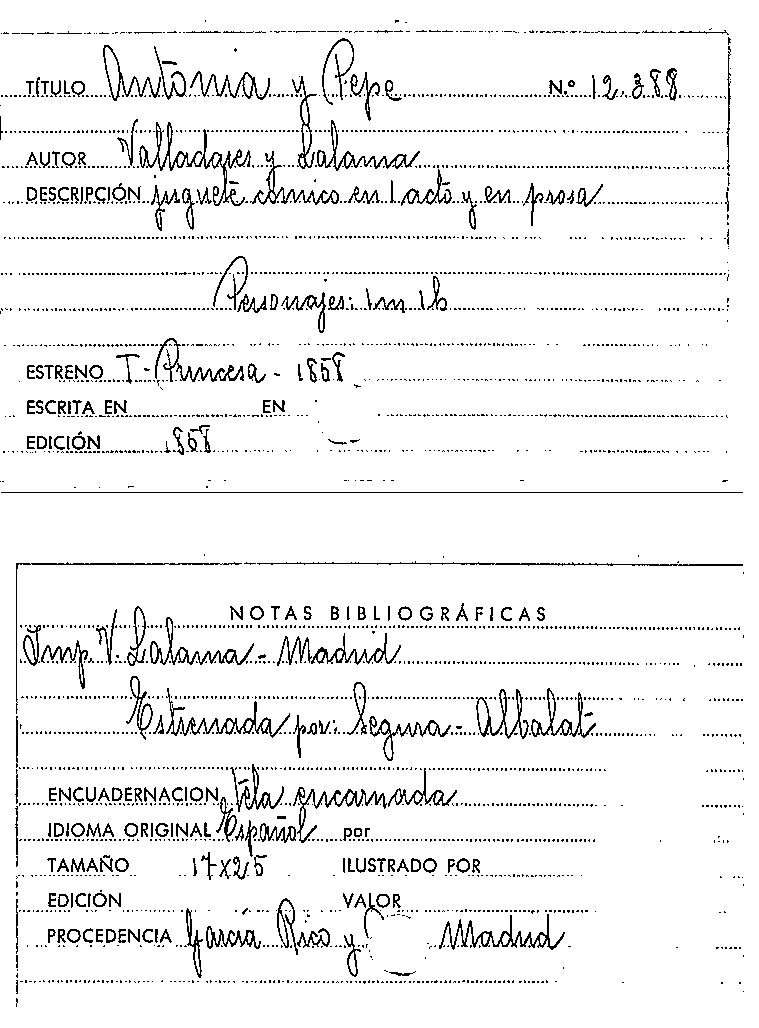 TÍTULO Antonia y Pepe N.º 12.388
AUTOR Valladares y Lalama
DESCRIPCIÓN juguete cómico en 1 acto y en prosa
Personajes: 1m 1h
ESTRENO T. Princesa - 1858
ESCRITA EN EN
EDICIÓN 1858
NOTAS BIBLIOGRÁFICAS
Imp. V. Lalama - Madrid
Estrenada por: Segura - Albalat
ENCUADERNACION Tela encarnada
IDIOMA ORIGINAL Español por
TAMAÑO 17x25 ILUSTRADO POR
EDICIÓN VALOR
PROCEDENCIA García Rico y Madrid